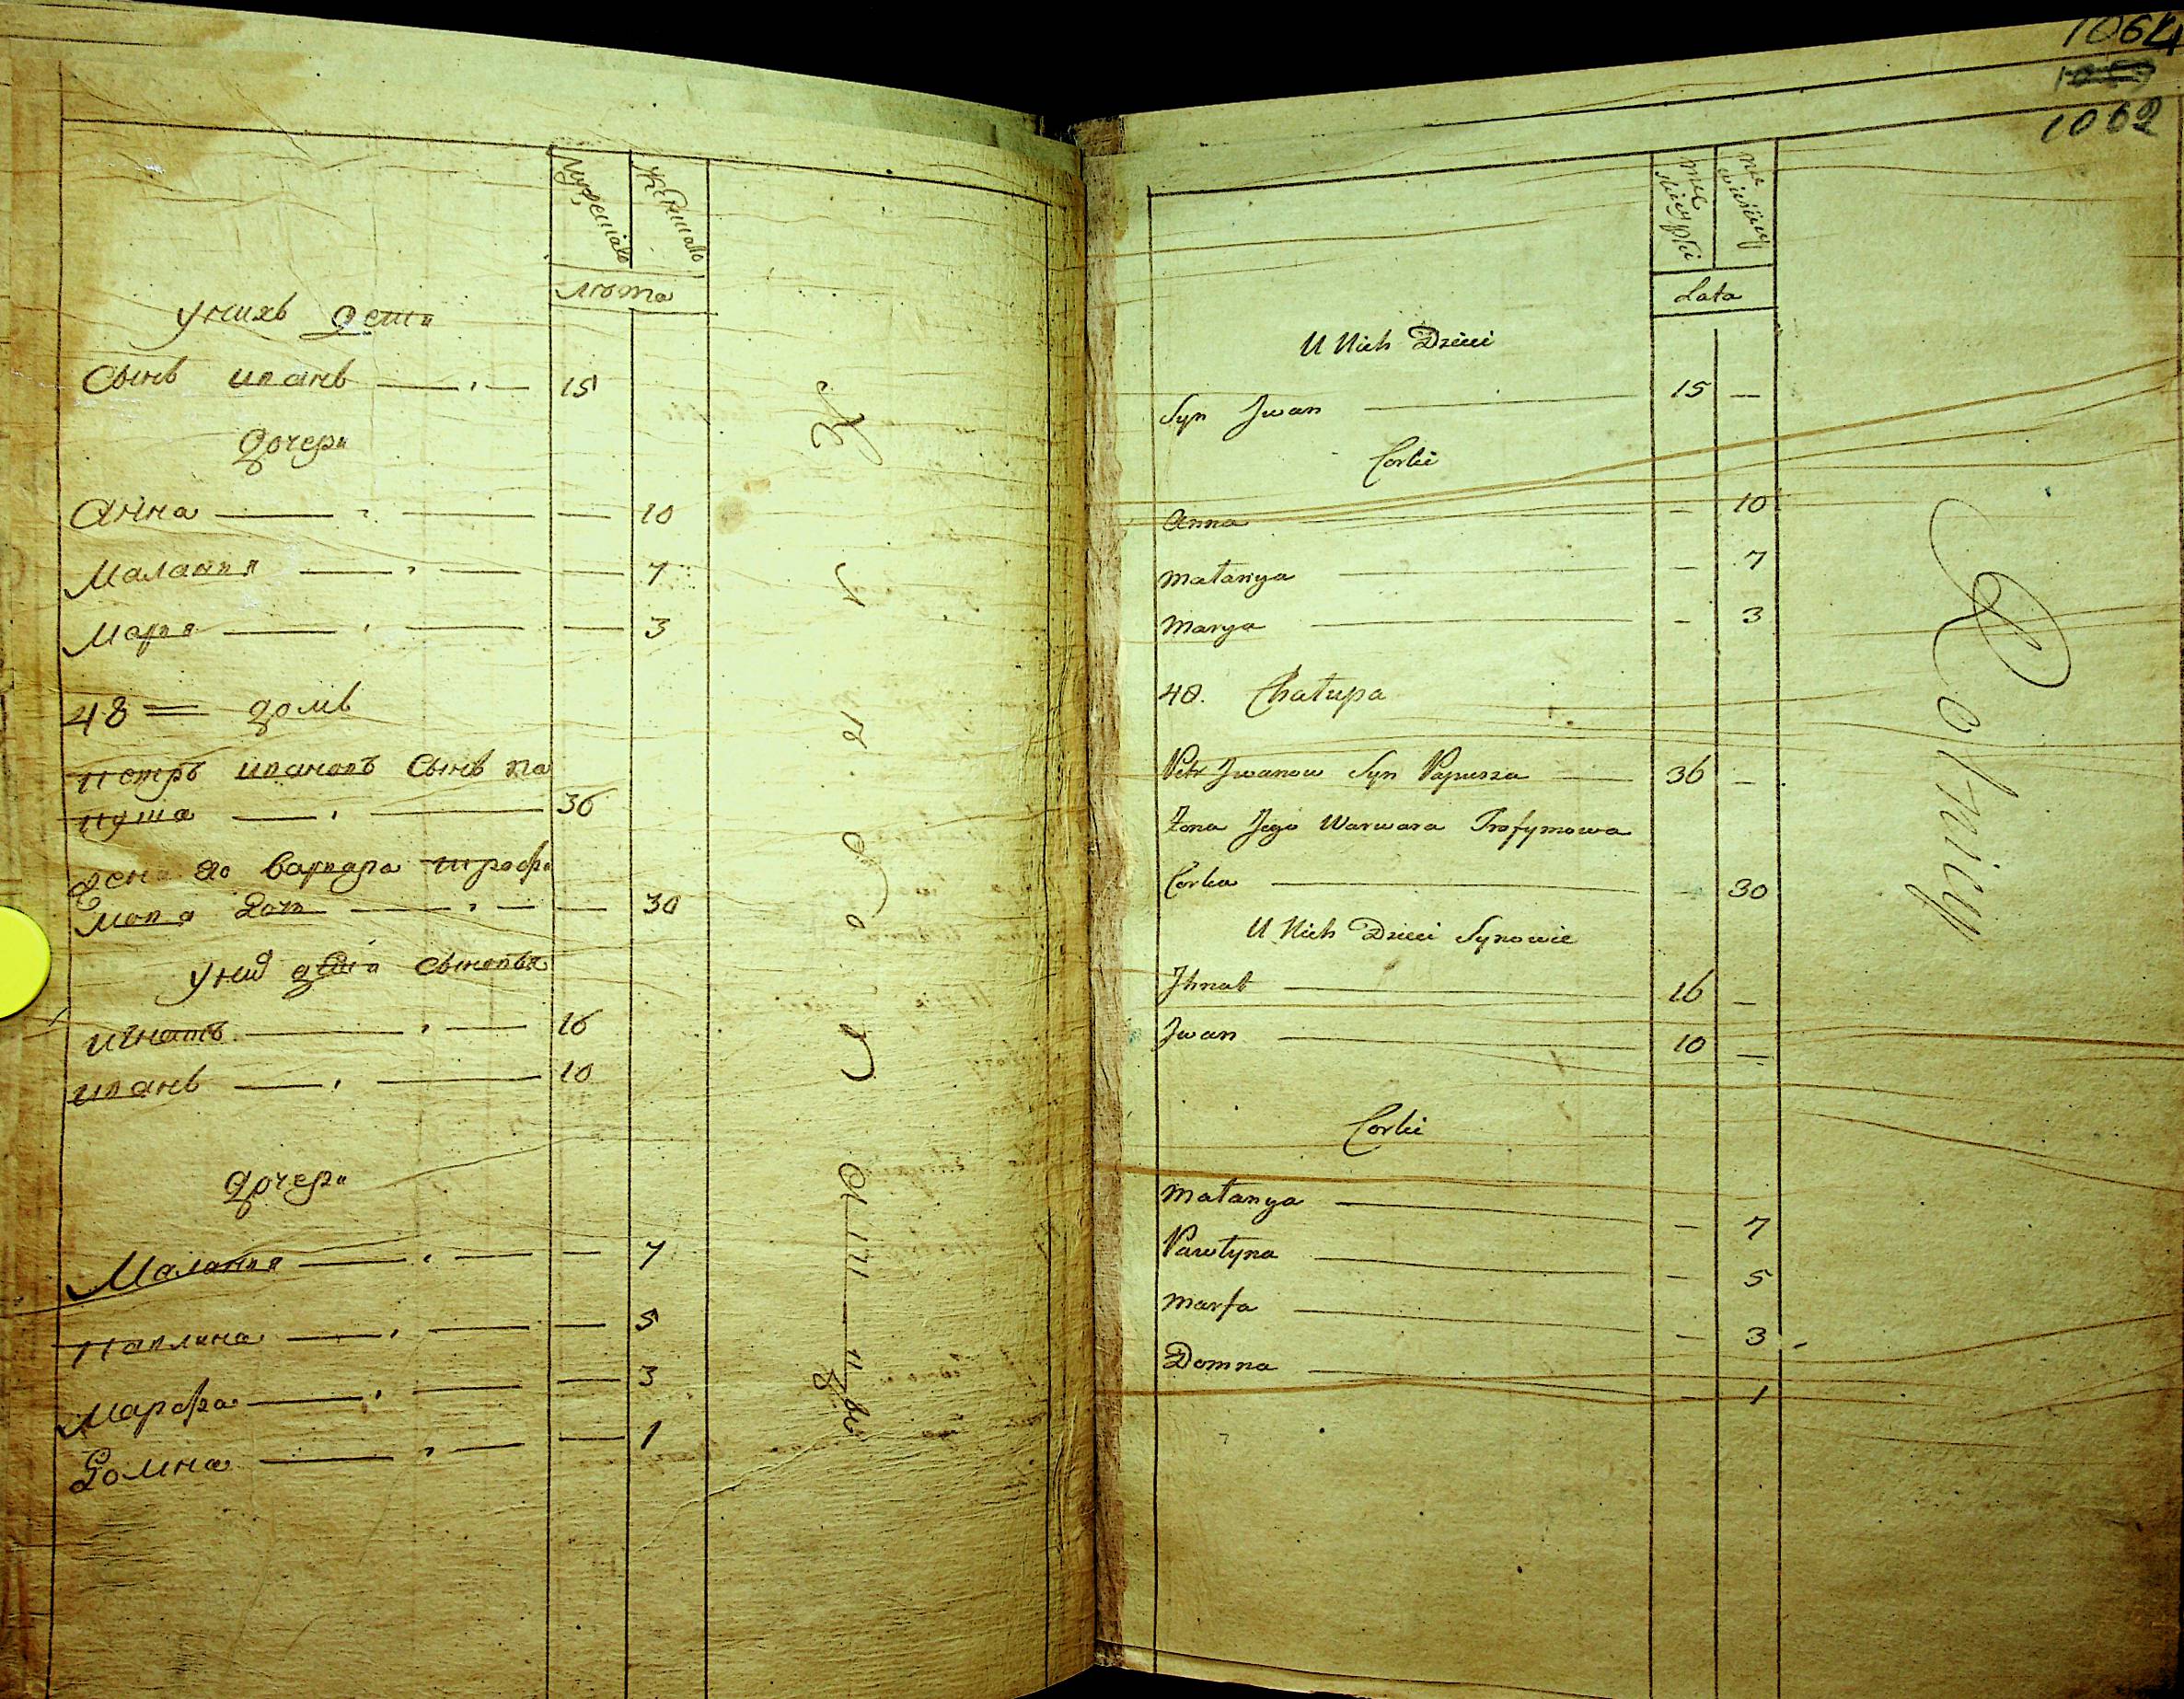 Мужеска Женска
Лѣта
У нихъ дети
Сынъ иванъ 15
Дочери
Анна — 10
Малания — 7
Мария — 3
48 = домъ
петръ ивановъ Сынъ па
пуша 36
Жена его варвара трофи
мова дочь — 30
У них дети Сыновья
игнатъ 16
иванъ 10
дочери
Малания — 7
павлина — 5
Марфа — 3
Домна — 1
1064
1062
Lata
U Nich Dzieci
Syn Jwan 15 —
Corki
Anna — 10
Małanya — 7
Marya — 3
48. Chałupa
Petr Jwanow Syn Papusza 36 —
Żona Jego Warwara Trofymowa
Corka — 30
U Nich Dzieci Synowie
Jhnat 16 —
Jwan 10 —
Corki
Małanya — 7
Pawłyna — 5
Marfa — 3
Domna — 1
Rolnicy